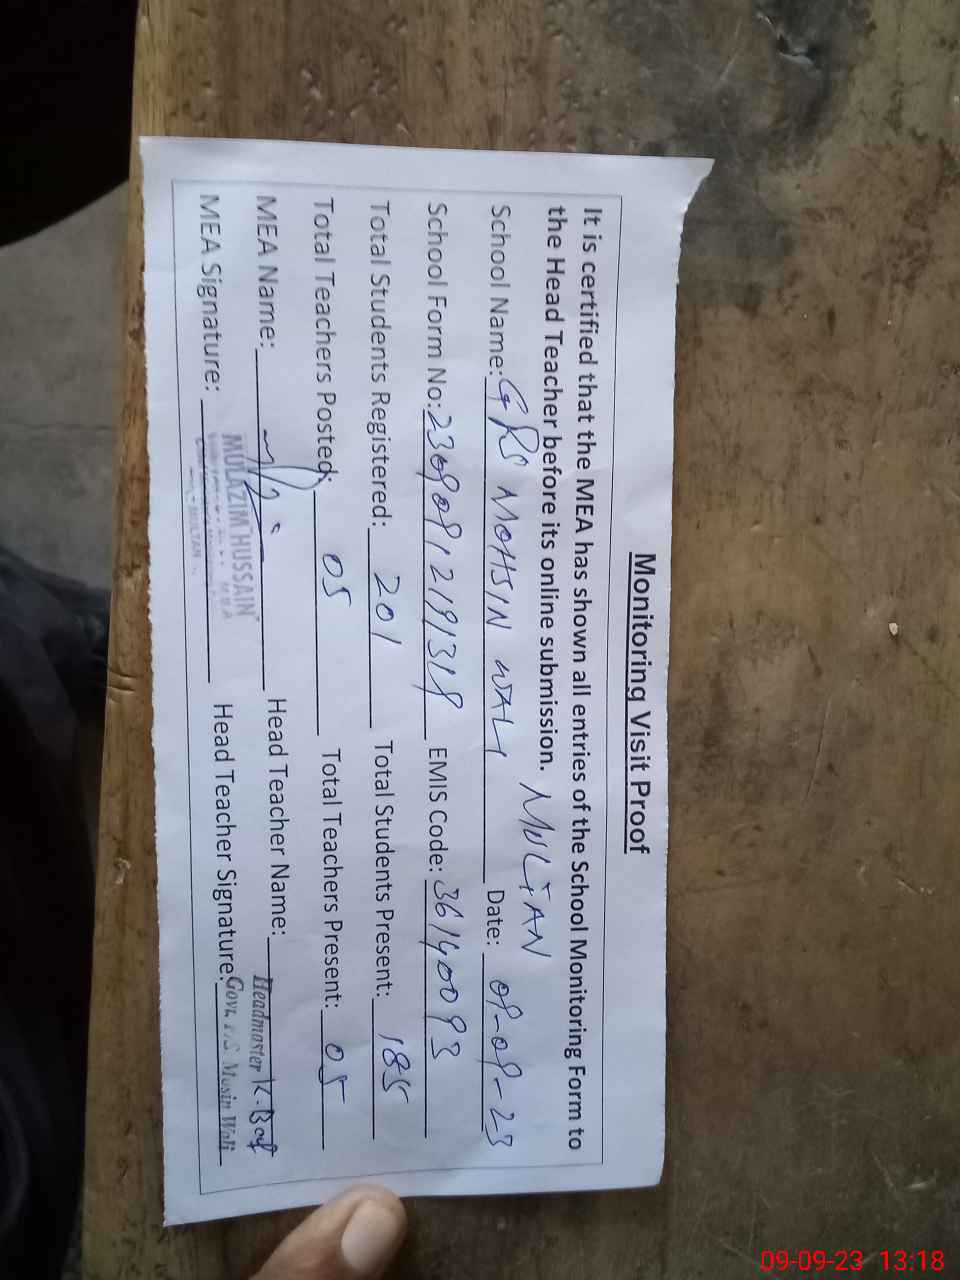 Monitoring Visit Proof
It is certified that the MEA has shown all entries of the School Monitoring Form to
the Head Teacher before its online submission. MULTAN
School Name: GPS MOHSIN WALI Date: 09-09-23
School Form No: 23090812191318 EMIS Code: 36140093
Total Students Registered: 201 Total Students Present: 185
Total Teachers Posted: 05 Total Teachers Present: 05
MEA Name: Head Teacher Name: Headmaster
MEA Signature: MULAZIM HUSSAIN Head Teacher Signature: Govt P/S Mosin Wali
MEA
MULTAN
09-09-23 13:18